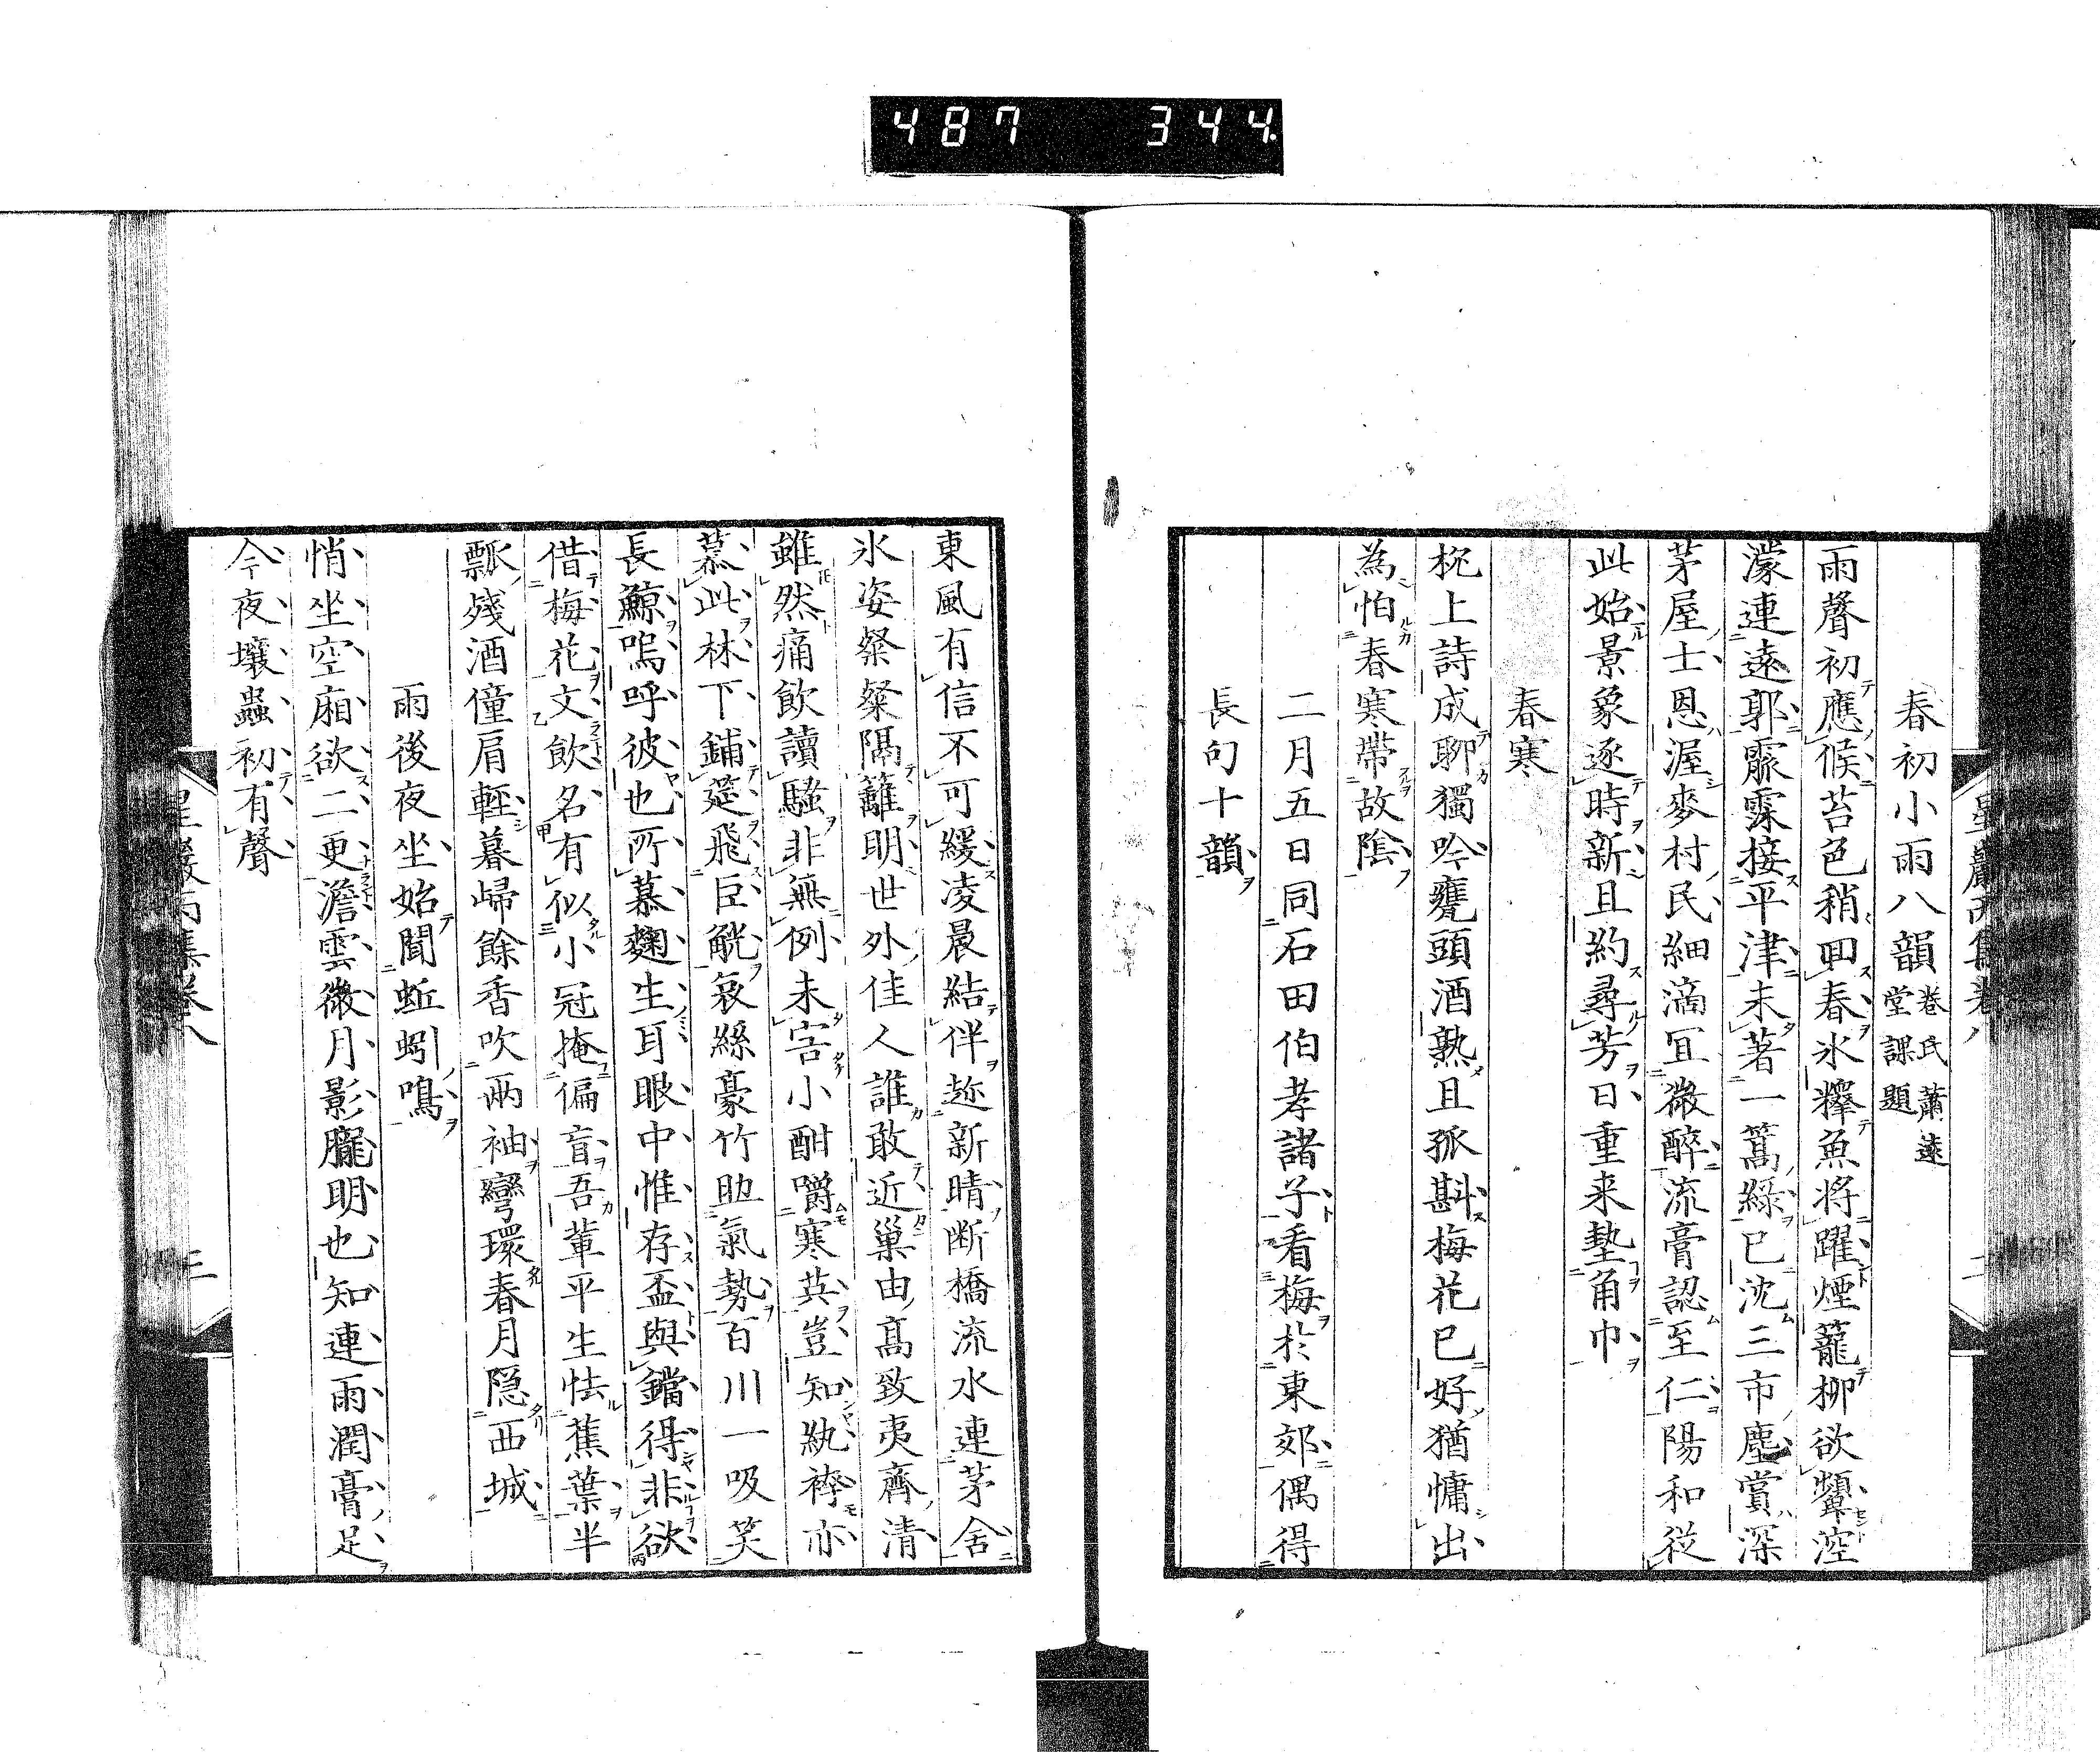 487 344
春初小雨八韻 卷氏蕭遠堂課題
雨聲初應候苔色稍回春氷釋魚將躍煙籠柳欲顰涳
濛連遠郭霢霂接平津未著一篙綠已沈三市塵賞深
茅屋士恩渥麥村民細滴宜微醉流膏認至仁陽和從
此始景象逐時新且約尋芳日重来墊角巾
春寒
枕上詩成聊獨吟甕頭酒熟且孤斟梅花已好猶慵出
為怕春寒帶故陰
二月五日同石田伯孝諸子看梅於東郊偶得
長句十韻
東風有信不可緩凌晨結伴趂新晴断橋流水連茅舍
氷姿粲粲隔籬明世外佳人誰敢近巢由高致夷齊清
雖然痛飲讀騷非無例未害小酣嚼寒英豈知紈袴亦
慕此林下鋪筵飛巨觥哀絲豪竹助氣勢百川一吸笑
長鯨嗚呼彼也所慕麴生耳眼中惟存盃與鐺得非欲
借梅花文飲名有似小冠掩偏盲吾輩平生怯蕉葉半
瓢殘酒僮肩輕暮歸餘香吹兩袖彎環春月隠西城
雨後夜坐始聞蚯蚓鳴
悄坐空廂欲二更澹雲微月影朧明也知連雨潤膏足
今夜壤蟲初有聲